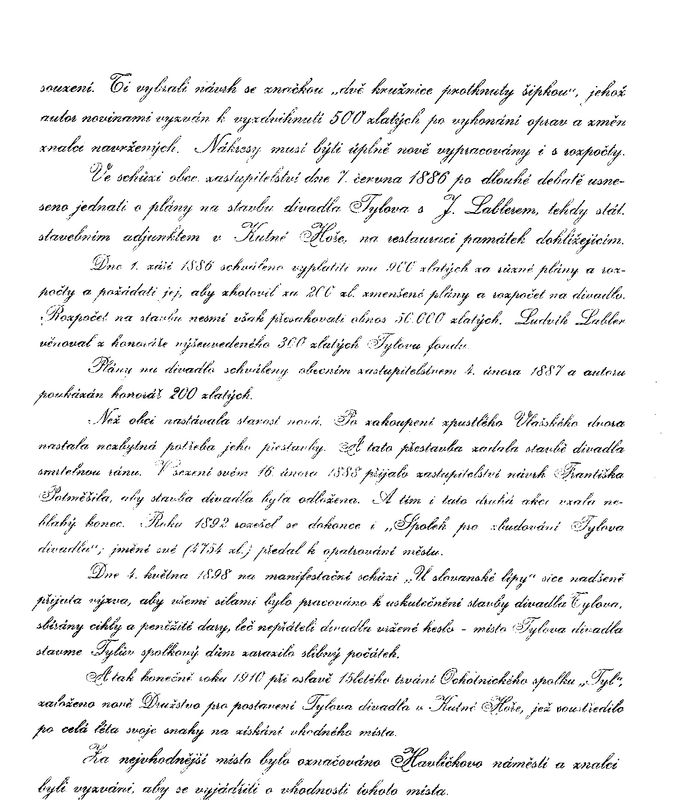 souzení. Ti vybrali návrh se značkou „dvě kružnice protknuty šipkou“, jehož
autor novinami vyzván k vyzdvihnutí 500 zlatých po vykonání oprav a změn
znalci navržených. Nákresy musí býti úplně nově vypracovány i s rozpočty.
Ve schůzi obec. zastupitelství dne 7. června 1886 po dlouhé debatě usne-
seno jednati o plány na stavbu divadla Tylova s J. Lablerem, tehdy stát.
stavebním adjunktem v Kutné Hoře, na restauraci památek dohlížejícím.
Dne 1. září 1886 schváleno vyplatiti mu 900 zlatých za různé plány a roz-
počty a požádati jej, aby zhotovil za 200 zl. zmenšené plány a rozpočet na divadlo.
Rozpočet na stavbu nesmí však přesahovati obnos 50.000 zlatých. Ludvík Labler
věnoval z honoráře výšeuvedeného 300 zlatých Tylovu fondu.
Plány na divadlo schváleny obecním zastupitelstvem 4. února 1887 a autoru
poukázán honorář 200 zlatých.
Než obci nastávala starost nová. Po zakoupení zpustlého Vlašského dvora
nastala nezbytná potřeba jeho přestavby. A tato přestavba zadala stavbě divadla
smrtelnou ránu. V sezení svém 16. února 1888 přijalo zastupitelství návrh Františka
Potměšila, aby stavba divadla byla odložena. A tím i tato druhá akce vzala ne-
blahý konec. Roku 1892 rozešel se dokonce i „Spolek pro zbudování Tylova
divadla“; jmění své (4754 zl.) předal k opatrování městu.
Dne 4. května 1898 na manifestační schůzi „U slovanské lípy“ sice nadšeně
přijata výzva, aby všemi silami bylo pracováno k uskutečnění stavby divadla Tylova,
sbírány cihly a peněžité dary, leč nepřáteli divadla vržené heslo - místo Tylova divadla
stavme Tylův spolkový dům zarazilo slibný počátek.
A tak konečně roku 1910 při oslavě 15letého trvání Ochotnického spolku „Tyl“,
založeno nové Družstvo pro postavení Tylova divadla v Kutné Hoře, jež soustředilo
po celá léta svoje snahy na získání vhodného místa.
Za nejvhodnější místo bylo označováno Havlíčkovo náměstí a znalci
byli vyzváni, aby se vyjádřili o vhodnosti tohoto místa.